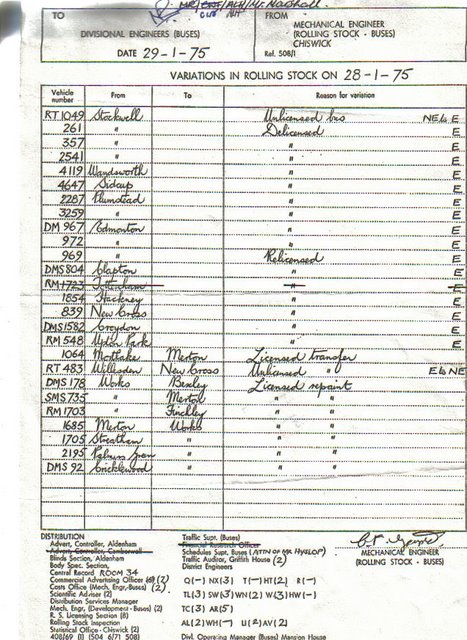 MR Marshall.
TO
DIVISIONAL ENGINEERS (BUSES)
DATE 29-1-75
FROM
MECHANICAL ENGINEER
(ROLLING STOCK - BUSES)
CHISWICK
Ref. 508/1
VARIATIONS IN ROLLING STOCK ON 28-1-75
Vehicle number From To Reason for variation
RT 1049 Stockwell Unlicensed bus NE to E
261 " Delicensed E
357 " " E
2541 " " E
4119 Wandsworth " E
4647 Sidcup " E
2287 Plumstead " E
3259 " " E
DM 967 Edmonton " E
972 " " E
969 " Relicensed E
DMS 804 Clapton " E
RM 1723 Tottenham " E
1854 Hackney " E
839 New Cross " E
DMS 1582 Croydon " E
RM 548 Upton Park " E
1064 Mortlake Merton Licensed transfer
RT 483 Willesden New Cross Unlicensed " E to NE
DMS 178 Works Bexley Licensed repaint
SMS 735 " Merton " "
RM 1703 " Finchley " "
1685 Merton Works " "
1705 Streatham " " "
2195 Palmers Green " " "
DMS 92 Cricklewood " " "
DISTRIBUTION
Advert, Controller, Aldenham
Advert, Controller, Camberwell
Blinds Section, Aldenham
Body Spec. Section,
Central Record ROOM 34
Commercial Advertising Officer (2)
Costs Office (Mech, Engr, Buses) (2)
Scientific Adviser (2)
Distribution Services Manager
Mech. Engr, (Development - Buses) (2)
R. S. Licensing Section (8)
Rolling Stock Inspection
Statistical Office - Chiswick (2)
408/69 (I) (504 6/71 508)
Traffic Supt. (Buses)
Financial Research Officer
Schedules Supt, Buses (ATTN OF MR HYSLOP)
Traffic Auditor, Griffith House (2)
District Engineers
Q(-) NX(3) T(-) HT(2) R(-)
TL(3) SW(3) WN(2) W(3) HW(-)
TC(3) AR(5)
AL(2) WH(-) U(2) AV(2)
Divl. Operating Manager (Buses) Mansion House
MECHANICAL ENGINEER
(ROLLING STOCK - BUSES)